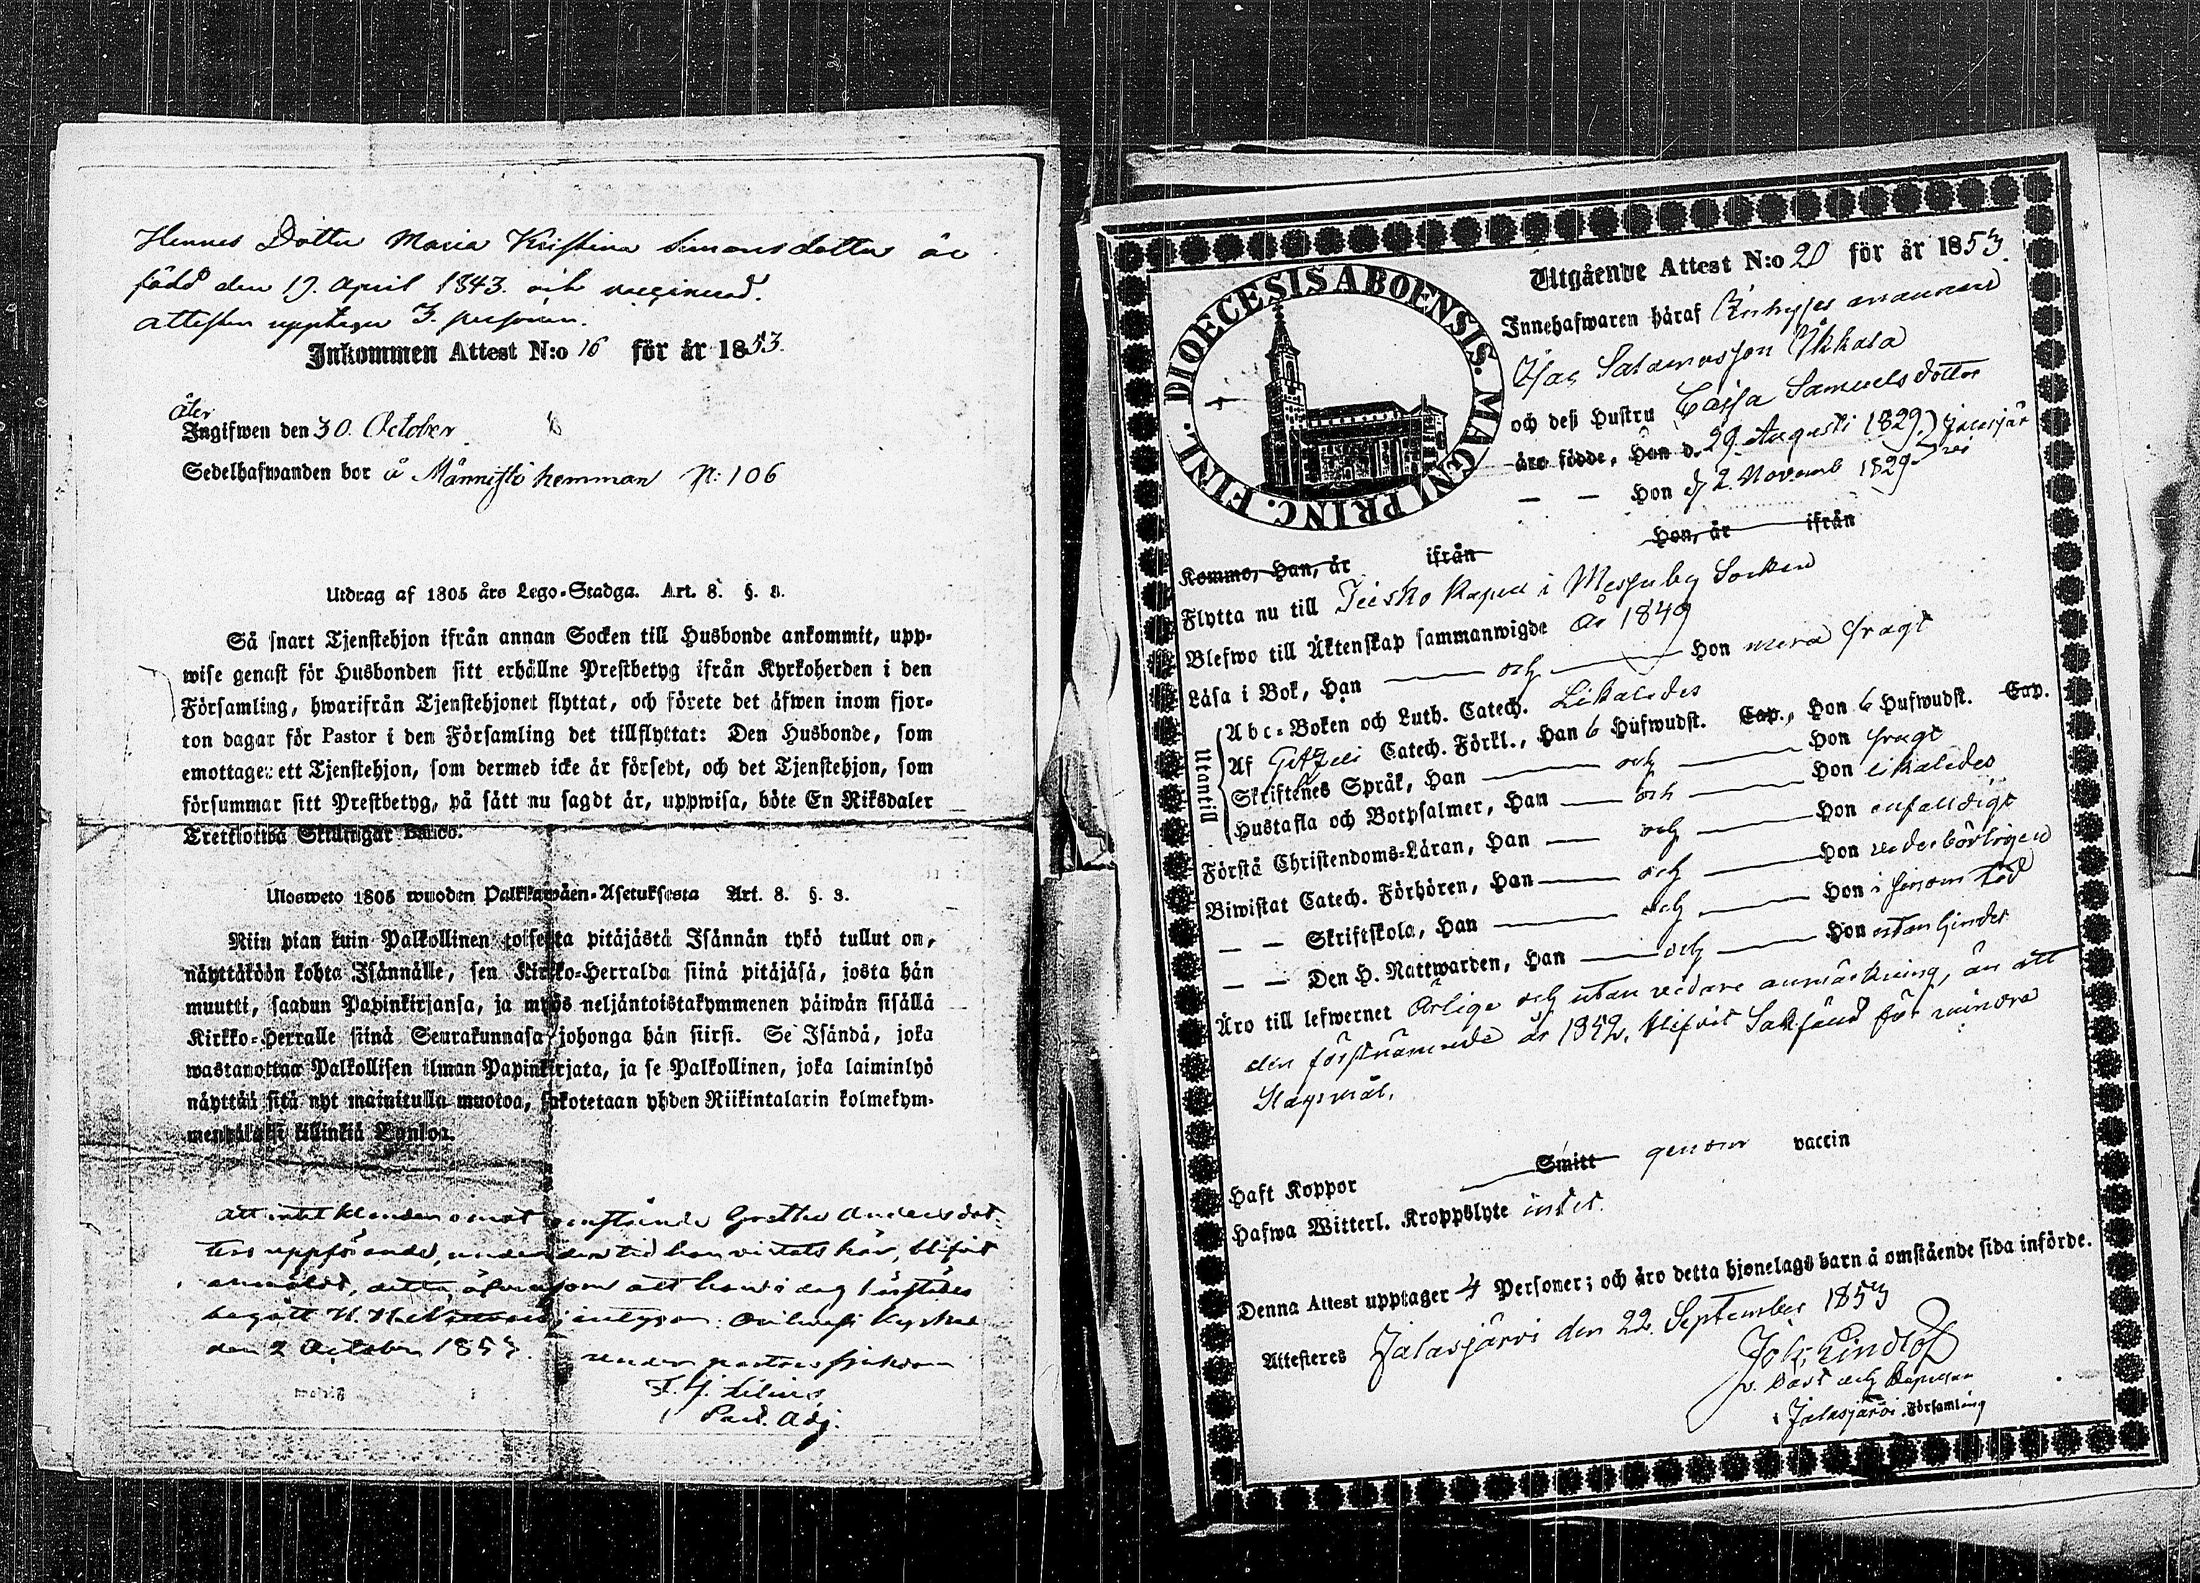 Hennes Dotter Maria Kristina Simonsdotter är
född den 19. April 1843. och vaccinerad.
Attesten upptager 3. personer.
Inkommen Attest N:o 16 för år 1853.
åter
Ingifwen den 30. October
Sedelhafwanden bor å Männistö hemman N: 106
Utdrag af 1805 års Lego-Stadga. Art. 8. §. 3.
Så snart Tjenstehjon ifrån annan Socken till Husbonde ankommit, upp-
wise genast för Husbonden sitt erhållne Prestbetyg ifrån Kyrkoherden i den
Församling, hwarifrån Tjenstehjonet flyttat, och förete det äfwen inom fjor-
ton dagar för Pastor i den Församling det tillflyttat: Den Husbonde, som
emottager ett Tjenstehjon, som dermed icke är försedt, och det Tjenstehjon, som
försummar sitt Prestbetyg, på sätt nu sagdt är, uppwisa, böte En Riksdaler
Trettiotwå Skillingar Banco.
Ulosweto 1805 wuoden Palkkawäen-Asetuksesta Art. 8. §. 3.
Niin pian kuin Palkollinen toisesta pitäjästä Isännän tykö tullut on,
näyttäköön kohta Isännälle, sen Kirkko-Herralda siinä pitäjäsä, josta hän
muutti, saadun Papinkirjansa, ja myös neljäntoistakymmenen päiwän sisällä
Kirkko-Herralle siinä Seurakunnasa johonga hän siirsi. Se Isändä, joka
wastanottaa Palkollisen ilman Papinkirjata, ja se Palkollinen, joka laiminlyö
näyttää sitä nyt mainitulla muotoa, sakotetaan yhden Riikintalarin kolmekym-
mentäkaksi killinkiä Bankoa.
Att intet klander emot omstående Greta Andersdot-
ters uppförande, under den tid hon vistats här, blifvit
anmäldt, detta, äfvensom att hon i dag härstädes
begått H. H. Nattvard, intygar: Orihvesi Kyrka
den 2 October 1853.
under pastors sjukdom
Past. Adj.
DIOECESIS ABOENSIS. MAGNI PRINC. FINL.
Utgående Attest N:o 20 för år 1853.
Innehafwaren häraf
Isac Salomosson Ikkala
och deß Hustru Cajsa Samuelsdotter
äro födde, Han d. 29. Augusti 1829. Jalasjär
— — Hon d 2. Novemb 1829 vi
Komme, Han, år ifrån Hon, år ifrån
Flytta nu till Teisko Kapell i Messuby Socken
Blefwo till Äktenskap sammanwigde år 1849
Läsa i Bok, Han — och — Hon mera svagt
Utantill
Abc-Boken och Luth. Catech. Likaledes
Af Catech. Förkl., Han 6 Hufwudst. Cap., Hon 6 Hufwudst. Cap.
Skriftenes Språk, Han — och — Hon svagt
Hustafla och Botpsalmer, Han — och — Hon likaledes
Förstå Christendoms-Läran, Han — och — Hon enfaldigt
Biwistat Catech. Förhören, Han — och — Hon vederbörligen
— — Skriftskola, Han — och — Hon i sinom tid
— — Den H. Nattwarden, Han — och — Hon utan hinder
Äro till lefwernet ärlige och utan vidare anmärkning, än att
den förstnämnde år 1852, blifvit Sakfäld för mindre
Slagsmål.
Haft Koppor — Smitt genom vaccin
Hafwa Witterl. Kroppslyte intet.
Denna Attest upptager 4 Personer; och äro detta hjonelags barn å omstående sida införde.
Attesteres Jalasjärvi den 22. September 1853
Joh. Lindlöf
v. Past och Kapellan
i Jalasjärvi Församling